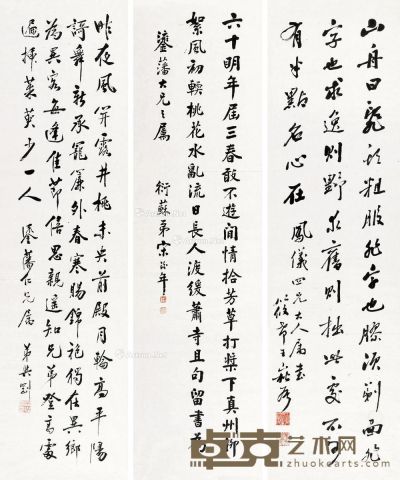 山舟曰亂頭粗服非字也膠漆剝面非
字也求逸則野求舊則拙此處不可
有半點名心在 鳳儀四兄大人屬書
六十明年屆三春敢不遊閒情拾芳草打槳下真州柳
絮風初輭桃花水亂流日長人渡緩蕭寺且句留書為
鎏藩大兄之屬 衍蘇弟宋年
昨夜風開露井桃未央前殿月輪高平陽
謌舞新承寵簾外春寒賜錦袍獨在異鄉
為異客每逢佳節倍思親遙知兄弟登高處
遍插茱萸少一人 鎏藩仁兄屬 弟吳
卓克艺术网
zhuokearts.com